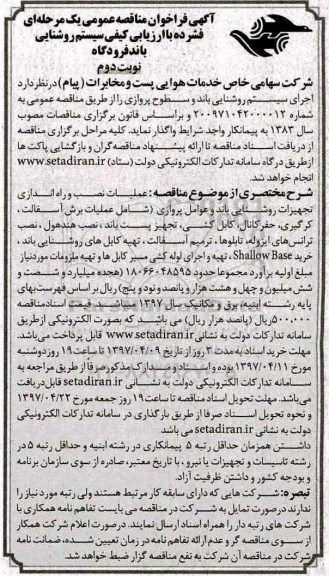 آگهی فراخوان مناقصه عمومی یک مرحله‌ای
فشرده با ارزیابی کیفی سیستم روشنایی
باند فرودگاه
نوبت دوم
شرکت سهامی خاص خدمات هوایی پست و مخابرات (پیام) در نظر دارد
اجرای سیستم روشنایی باند و سطوح پروازی را از طریق مناقصه عمومی به
شماره ۲۰۰۹۷۱۰۴۲۰۰۰۰۱۲ و براساس قانون برگزاری مناقصات مصوب
سال ۱۳۸۳ به پیمانکار واجد شرایط واگذار نماید. کلیه مراحل برگزاری مناقصه
از دریافت اسناد مناقصه تا ارائه پیشنهاد مناقصه‌گران و بازگشایی پاکت ها
از طریق درگاه سامانه تدارکات الکترونیکی دولت (ستاد) www.setadiran.ir
انجام خواهد شد.
شرح مختصری از موضوع مناقصه: عملیات نصب و راه اندازی
تجهیزات روشنایی باند و عوامل پروازی (شامل عملیات برش آسفالت ،
کرگیری، حفر کانال، کابل کشی، تجهیز پست باند، نصب هندهول، نصب
ترانس‌های ایزوله، تابلوها، ترمیم آسفالت، تهیه کابل های روشنایی باند ،
خرید Shallow Base، تهیه و اجرای لوله کشی مسیر کابل ها و تهیه ملزومات مورد نیاز
مبلغ اولیه برآورد مجموعا حدود ۱۸۰۶۶۰۴۸۵۹۵ (هجده میلیارد و شصت و
شش میلیون و چهل و هشت هزار و پانصد و نود و پنج) ریال بر اساس فهرست‌بهای
پایه رشته ابنیه، برق و مکانیک سال ۱۳۹۷ میباشد. قیمت اسناد مناقصه
۵۰۰.۰۰۰ ریال (پانصد هزار ریال) می باشد که بصورت الکترونیکی از طریق
سامانه تدارکات دولت به نشانی www.setadiran.ir قابل پرداخت می‌باشد.
مهلت خرید اسناد به مدت ۳ روز از تاریخ ۱۳۹۷/۰۴/۰۹ تا ساعت ۱۹ روز دوشنبه
مورخ ۱۳۹۷/۰۴/۱۱ بوده و اسناد و مدارک مذکور صرفاً از طریق مراجعه به
سامانه تدارکات الکترونیکی دولت به نشانی setadiran.ir قابل دریافت
می باشد. مهلت تحویل اسناد مناقصه تا ساعت ۱۹ روز جمعه مورخ ۱۳۹۷/۰۴/۲۲
و نحوه تحویل اسناد صرفا از طریق بارگذاری در سامانه تدارکات الکترونیکی
دولت به نشانی setadiran.ir می باشد
داشتن همزمان حداقل رتبه ۵ پیمانکاری در رشته ابنیه و حداقل رتبه ۵ در
رشته تاسیسات و تجهیزات یا نیرو، با تاریخ معتبر، صادره از سوی سازمان برنامه
و بودجه کشور و داشتن ظرفیت آزاد.
تبصره: شرکت هایی که دارای سابقه کار مرتبط هستند ولی رتبه مورد نیاز را
ندارند درصورت تمایل به شرکت در مناقصه می بایست تفاهم نامه همکاری با
شرکت های رتبه دار را همراه اسناد ارسال نمایند. درصورت اعلام شرکت همکار
از سوی مناقصه گر و عدم ارائه تفاهم نامه در زمان تعیین شده، ضمانت نامه
شرکت در مناقصه آن شرکت به نفع مناقصه گزار ضبط خواهد شد.